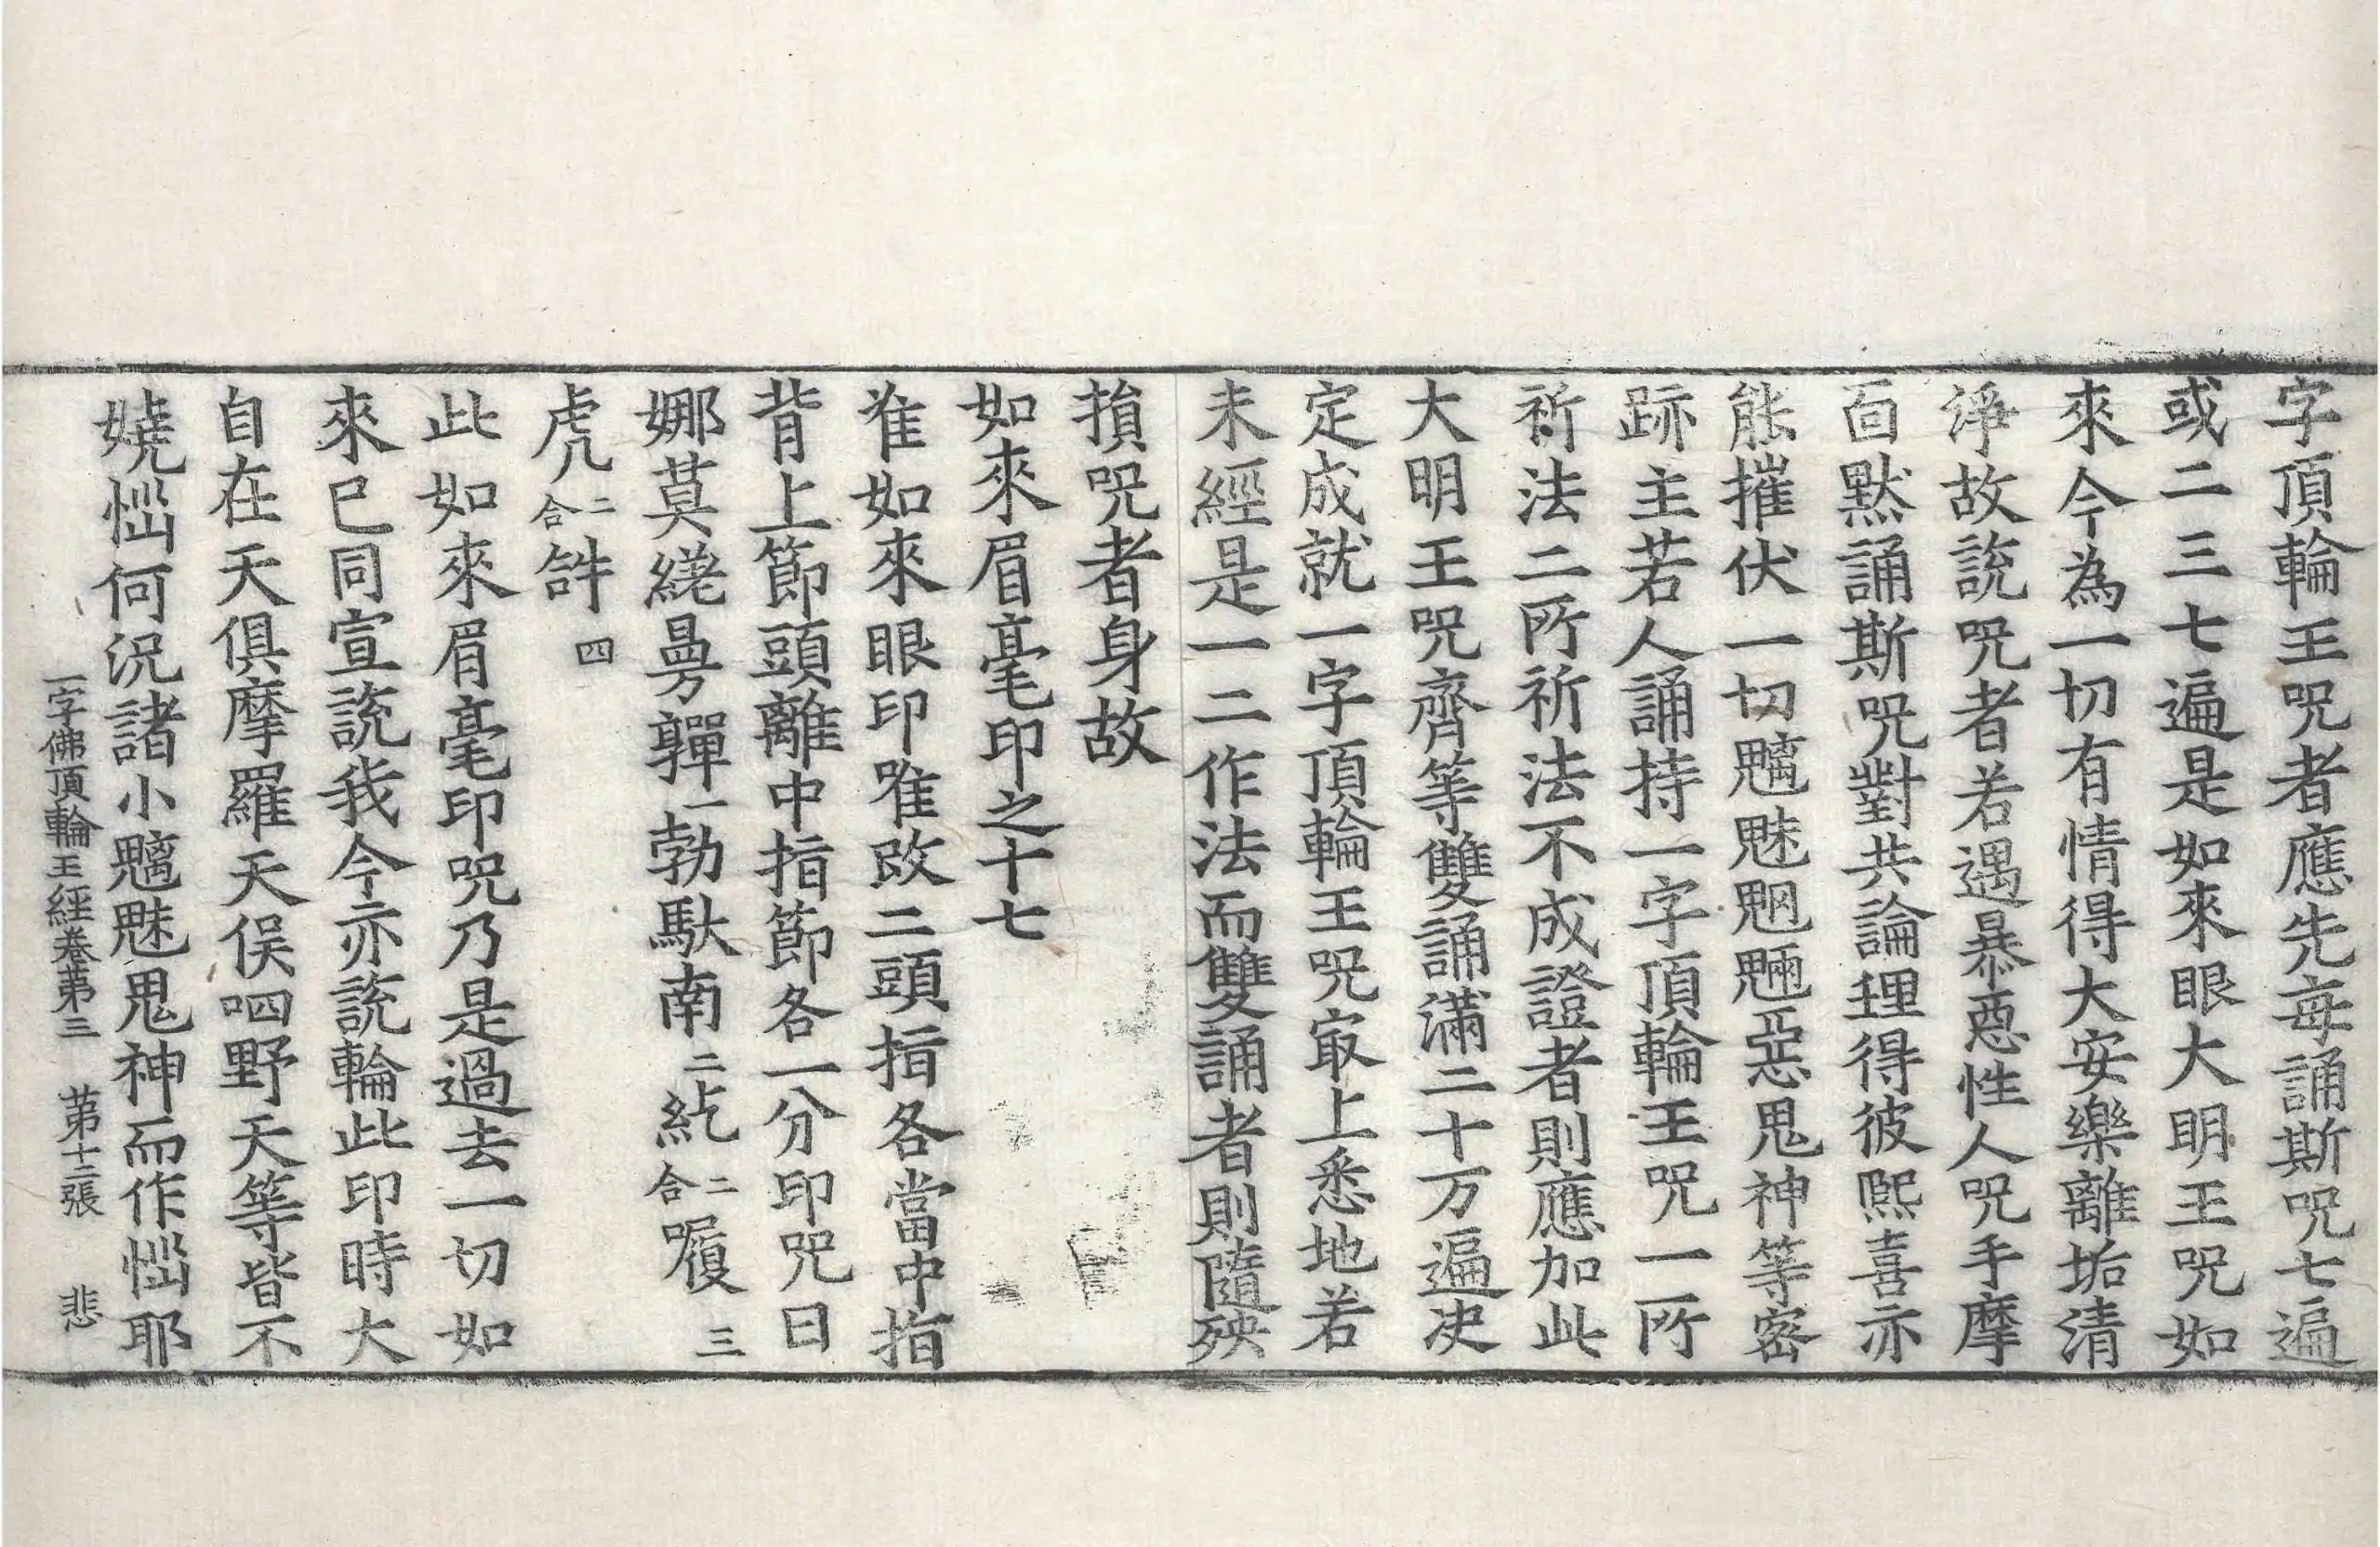 字頂輪王呪者應先每誦斯呪七遍
或二三七遍是如來眼大明王呪如
來今為一切有情得大安樂離垢清
淨故說呪者若遇暴惡性人呪手摩
面默誦斯呪對共論理得彼熈喜亦
能摧伏一切魑魅魍魎惡鬼神等密
跡主若人誦持一字頂輪王呪一所
祈法二所祈法不成證者則應加此
大明王呪齊等雙誦滿二十万遍决
定成就一字頂輪王呪㝡上悉地若
未經是一二作法而雙誦者則隨殃
損呪者身故
如來眉毫印之十七
准如來眼印唯改二頭指各當中指
背上節頭離中指節各一分印呪曰
娜莫繞曼嚲一勃馱南二紇二合㘑三
虎二合𤙖四
此如來眉毫印呪乃是過去一切如
來已同宣說我今亦說輪此印時大
自在天俱摩羅天俁呬野天等皆不
嬈惱何況諸小魑魅鬼神而作惱耶
一字佛頂輪王經卷第三 第十二張 悲